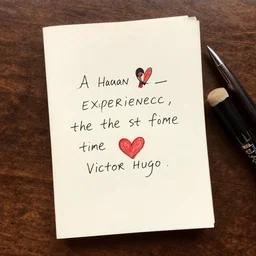 A Hauan —
EXPERIENECC,
the the st fome
time
VICTOR HUGO.